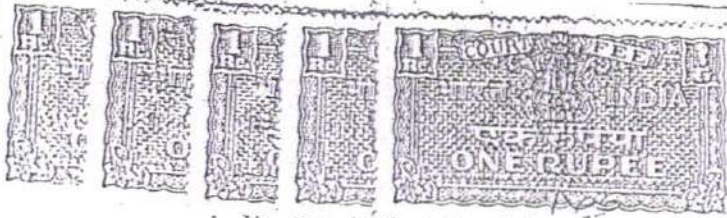 1 R. 1 R. 1 R. 1 R. 1 R. COURT FEE 1
भारत INDIA
एक रुपया
ONE RUPEE